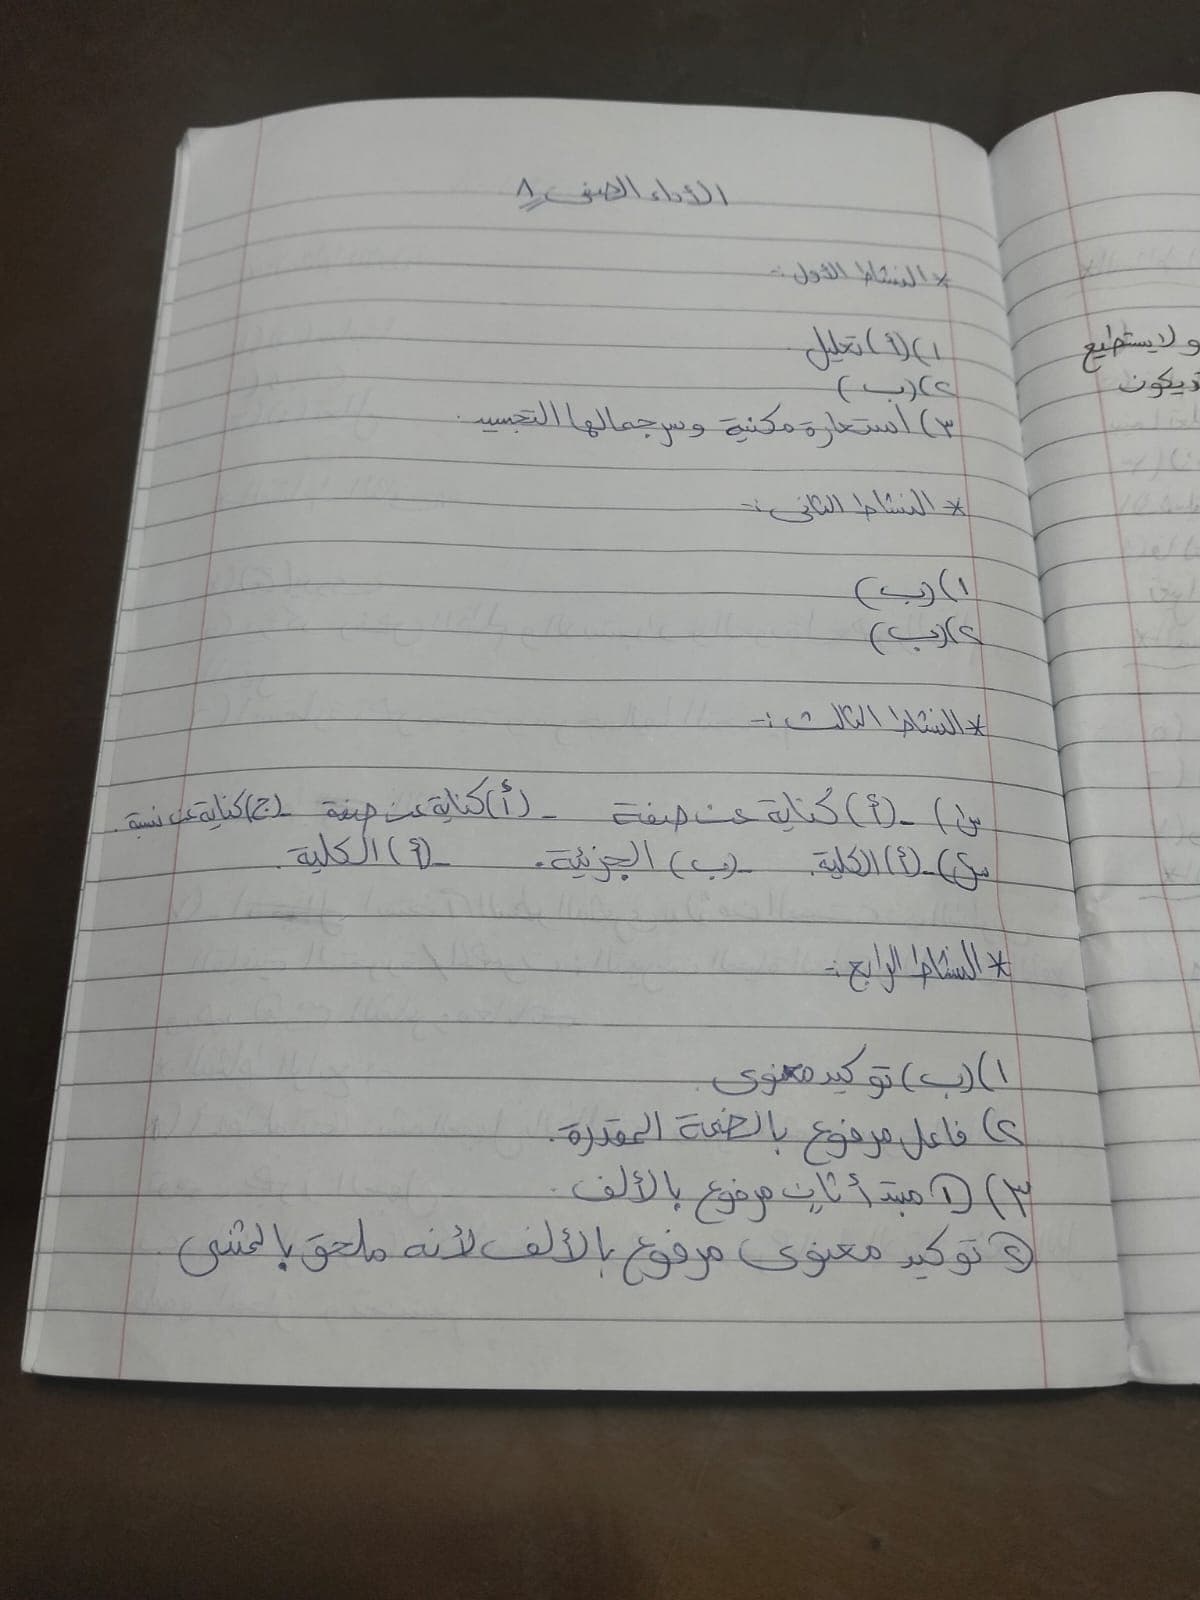 الأداء الصفى ٨
* النشاط الأول :-
١) (أ) تعليل
٢) (ب)
٣) استعارة مكنية وسر جمالها التجسيد.
* النشاط الثانى :-
١) (ب)
٢) (ب)
* النشاط الثالث :-
س١) - (أ) كناية عن صفة - (أ) كناية عن صفة - (ج) كناية عن نسبة.
س٢) - (أ) الكلية. - (ب) الجزئية. - (أ) الكلية.
* النشاط الرابع :-
١) (ب) توكيد معنوى.
٢) فاعل مرفوع بالضمة المقدرة.
٣) ① مبتدأ ثانٍ مرفوع بالألف.
② توكيد معنوى مرفوع بالألف لأنه ملحق بالمثنى.
ولا يستطيع